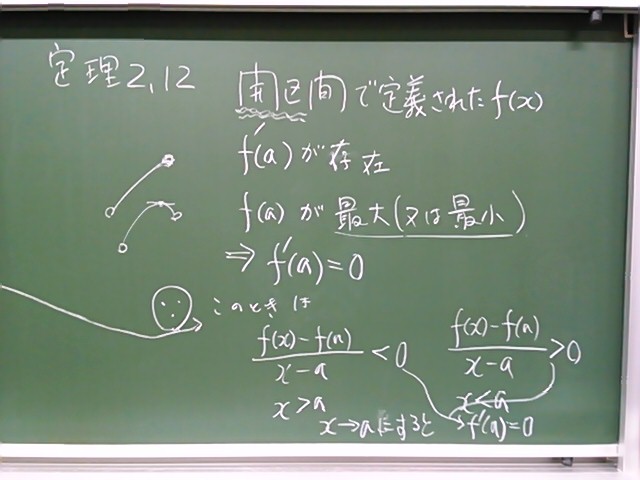 定理2.12
開区間で定義されたf(x)
f'(a)が存在
f(a)が最大(又は最小)
⇒ f'(a)=0
このときは
f(x)-f(a)/x-a < 0
x>a
f(x)-f(a)/x-a > 0
x<a
x→aにすると f'(a)=0